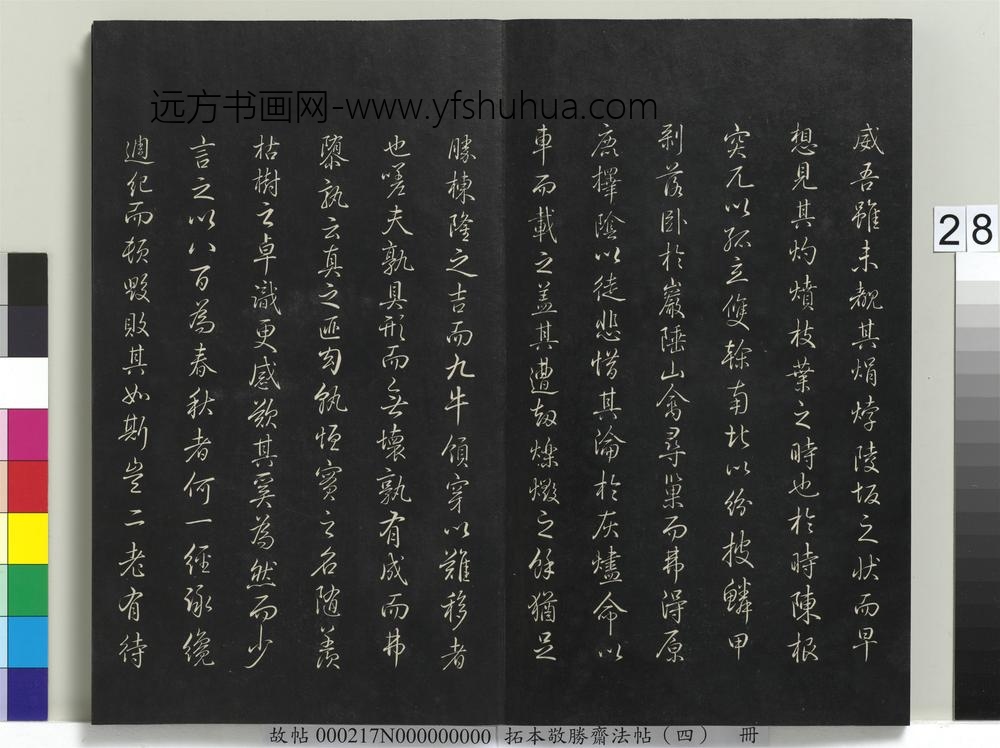 远方书画网-www.yfshuhua.com
威吾雖未覩其焆㶿陵坂之狀而早
想見其灼燌枝葉之時也於時陳根
突兀以孤立雙榦南北以紛披鱗甲
剥落臥於巖陲山禽尋巢而弗得原
鹿擇陰以徒悲惜其淪於灰燼命以
車而載之盖其遭劫爍燬之餘猶足
勝棟隆之吉而九牛領穿以難移者
也嗟夫孰具形而無壞孰有成而弗
隳孰云真之匪幻孰恒實之名隨羨
枯樹之卓識更感歎其奚為然而少
言之以八百為春秋者何一經詠纔
週紀而頓毀敗其如斯豈二老有待
28
故帖 000217N000000000 拓本敬勝齋法帖（四） 冊